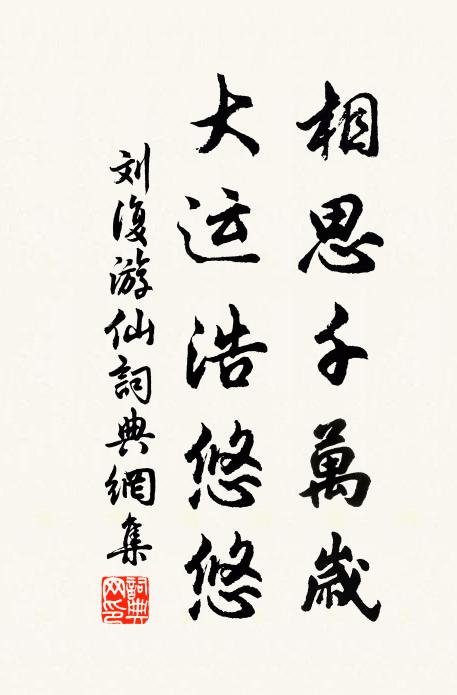 相思千萬歲
大运浩悠悠
刘復游仙詞典網集
詞典网印